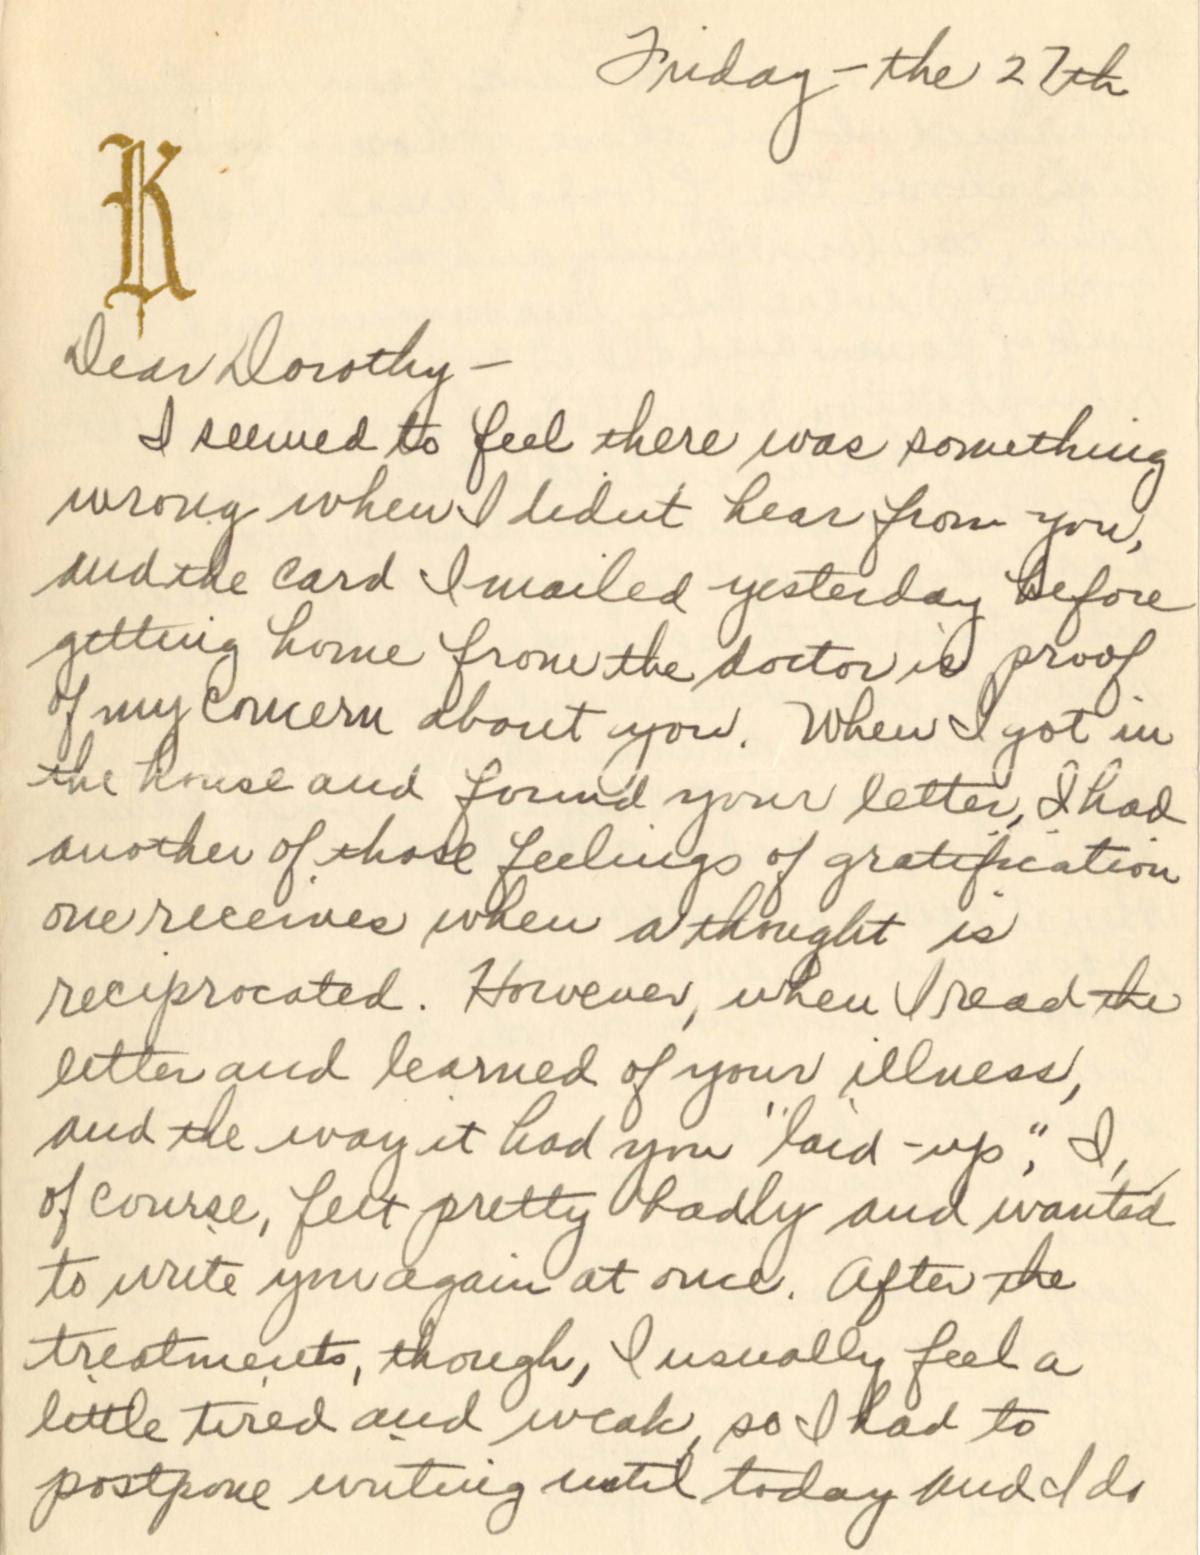 Friday - the 27th
K
Dear Dorothy -
I seemed to feel there was something
wrong when I didn't hear from you,
and the card I mailed yesterday before
getting home from the doctor is proof
of my concern about you. When I got in
the house and found your letter, I had
another of those feelings of gratification
one receives when a thought is
reciprocated. However, when I read the
letter and learned of your illness,
and the way it had you "laid-up", I,
of course, felt pretty badly and wanted
to write you again at once. After the
treatments, though, I usually feel a
little tired and weak, so I had to
postpone writing until today and I do